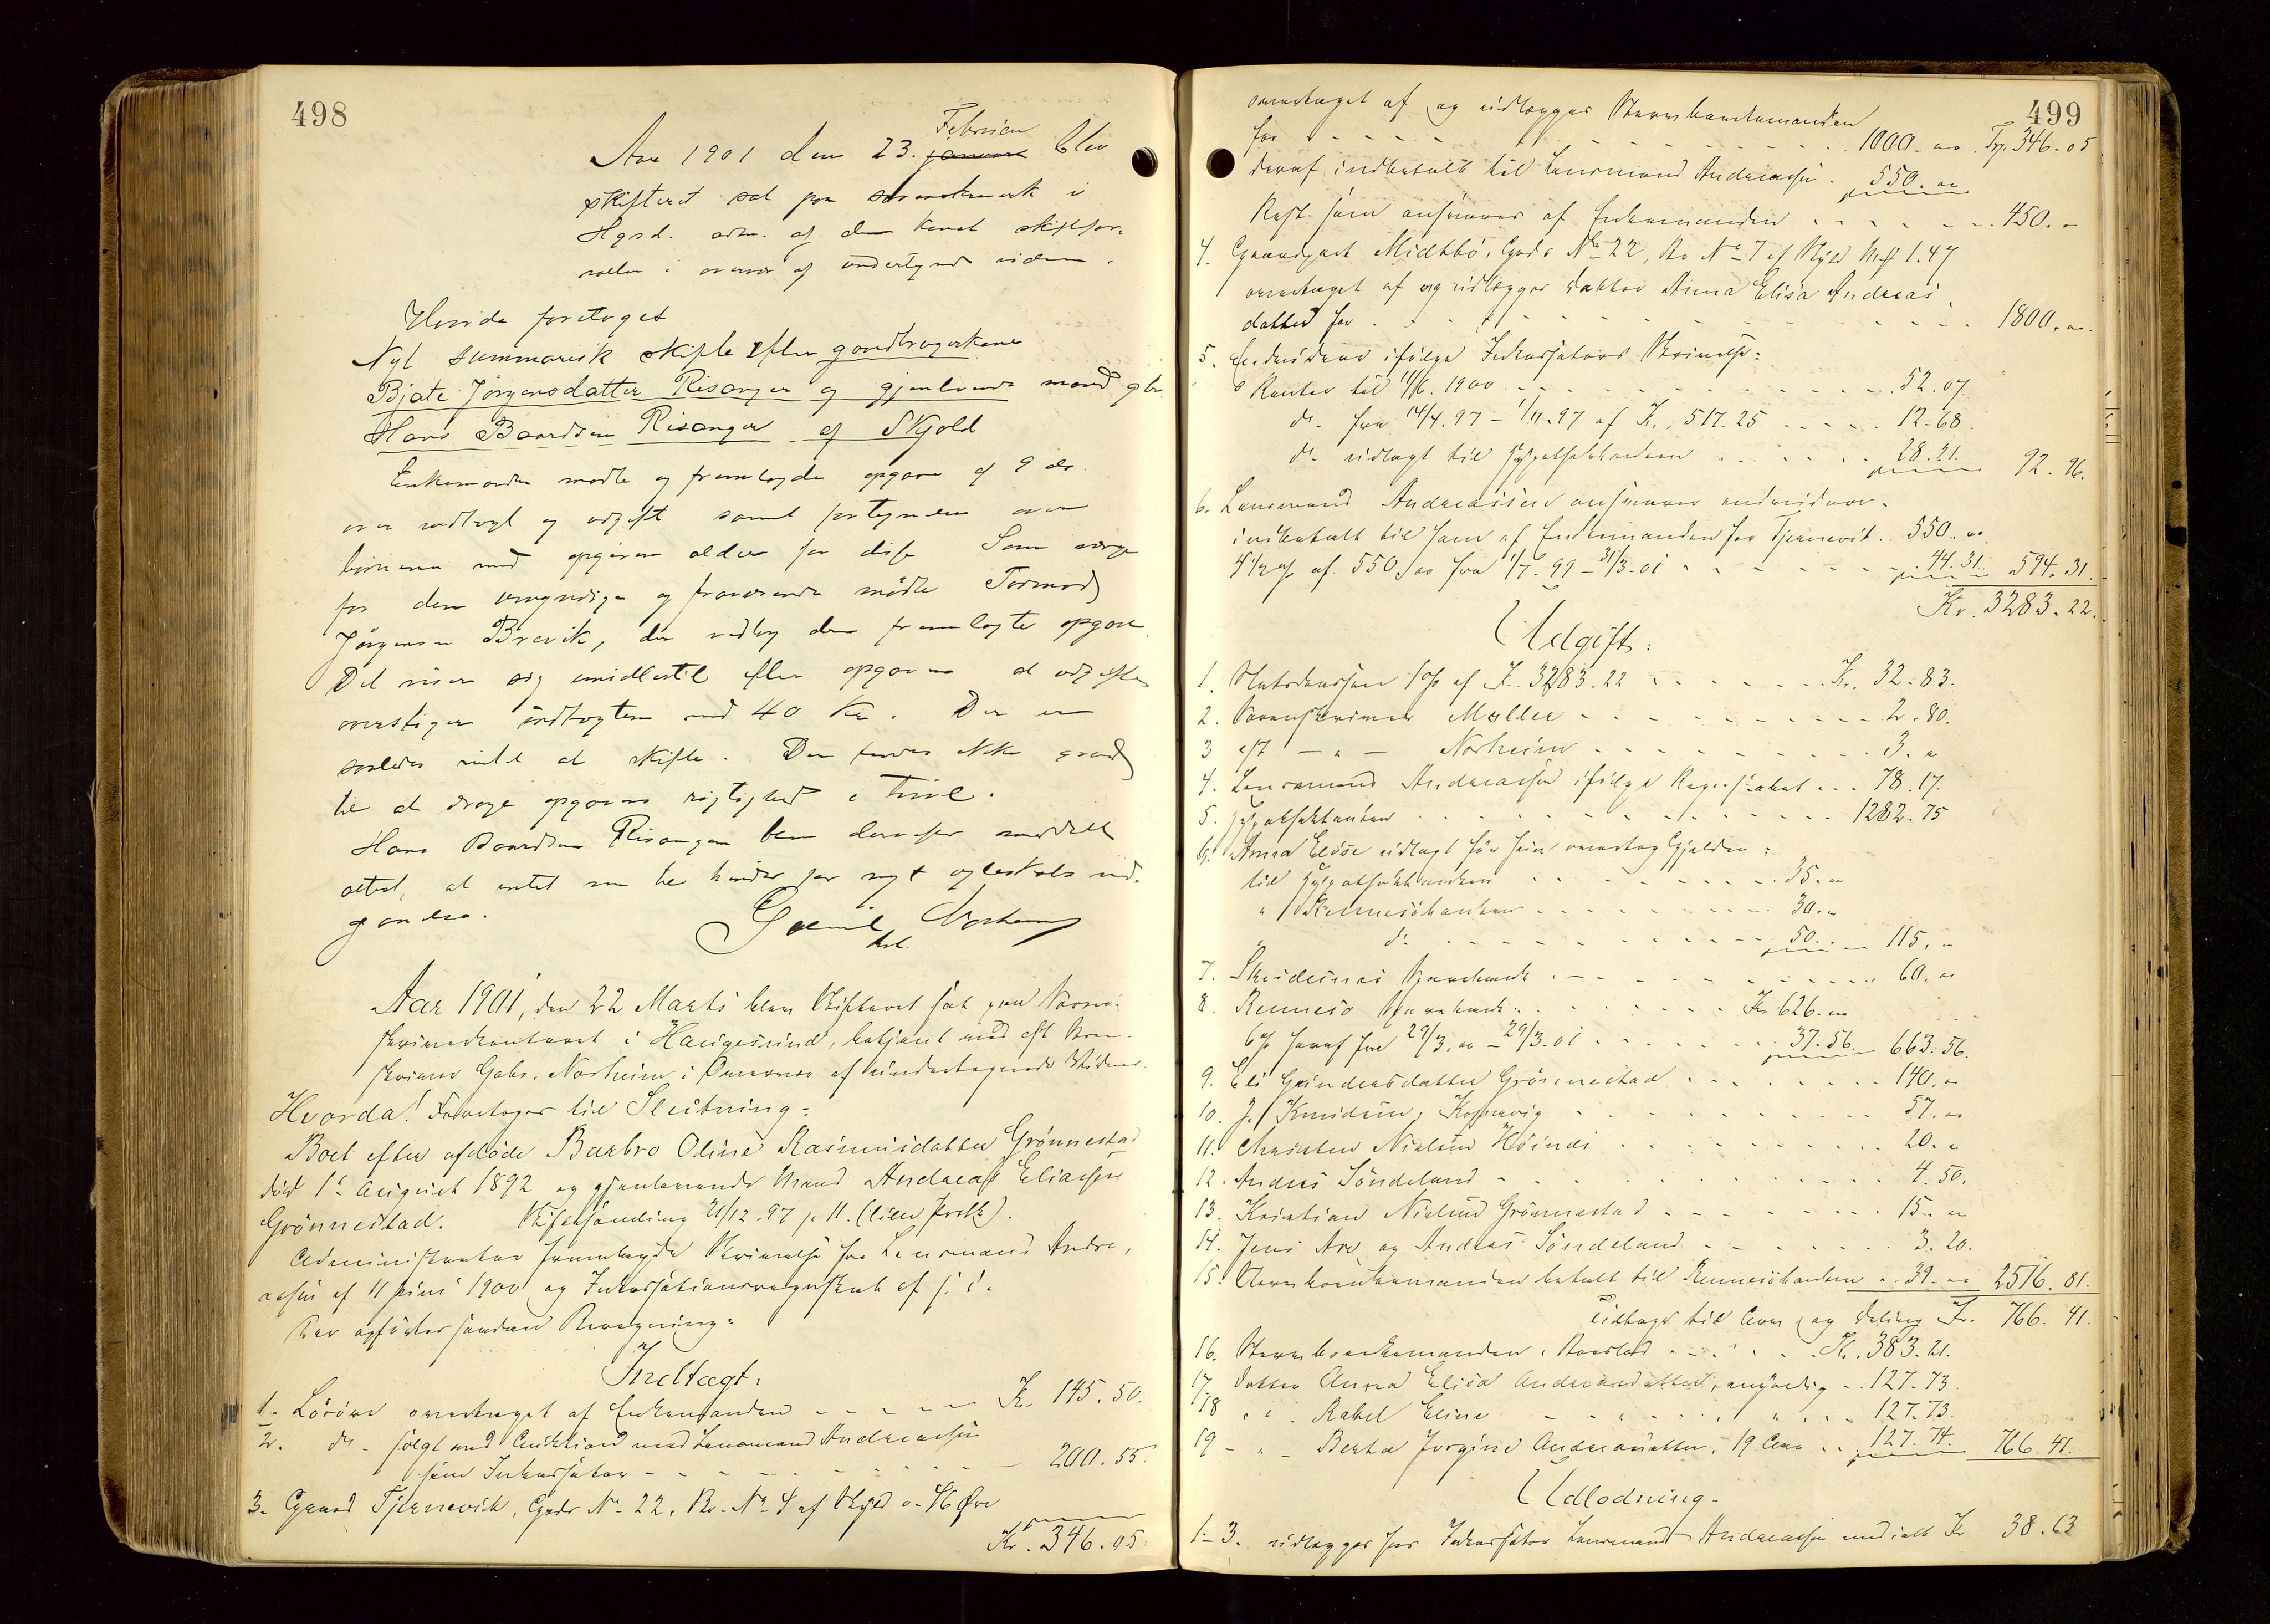 498
Februar
Aar 1901 den 23. januar blev
skifteret sat paa sorenskrverk i
Hgsd. adm. af den const skiftefor-
valter i overvær af undertegnede vidner.
Hvorda foretoges
Nyt summarisk skifte efter gaardbrugerkone
Bjate Jörgensdatter Risanger og gjenlevende mand gbr.
Hans Baardsen Risanger af Skjold
Enkemanden mødte og fremlagde opgave af 9 ds
over indtægt og udgift samt fortegnelse over
börnene med opgivne alder for disse Som værge
for den umyndige og fraværende mødte Tormod
Jörgensen Brevik, der vedtog den fremlagte opgave.
Det viser sig imidlertid efter opgaven at udgiften
overstiger indtægten med 40 Kr. Der er
saaledes intet at skifte. Der findes ikke grund
til at drage opgavens rigtighed i tvivl.
Hans Baardsen Risanger blev derefter meddelt
attest, at intet var til hinder for nyt ægteskabs ind-
gaaelse.
Gabriel Norheim
kst.
Aar 1901, den 22 Marts blev Skifteret sat paa Soren-
skriverkontoret i Haugesund, betjent med cst Soren-
skriver Gabr. Norheim i Overvær af undertegnede Vidner.
Hvorda! Foretoges til Slutning:
Boet efter afdöde Barbro Oline Rasmusdatter Grönnestad
död 1ste August 1892 og gjenlevende Mand Andreas Eliassen
Grönnestad. Skiftesamling 21/12.97 p. 11. (liden Protk).
Administrator fremlagde Skrivelse fra Lensmand Andre-
assen af 11 Juni 1900 og Inkassationsregnskab af s. d.
Der opförtes saadan Beregning:
Indtægt.
1. Lösöre overtaget af Enkemanden - - - - - Kr. 145.50.
2. do. solgt ved Auktion ved Lensmand Andreassen
som Inkassator - - - - - - - - - - 200.55.
3. Gaard Tjernevik, Gaards No. 22, Br. No. 4 af Skyld 0.46 Øre
Kr. 346.05
499
overtaget af og udlægges Stervboenkemanden
for - - - - - - - - - - - - 1000.00 Trp. 346.05
deraf indbetalt til Lensmand Andreassen. 550.00
Rest som ansvares af Enkemanden - - - - - - 450.-
4. Gaardpart Midtbö, Gards No 22, Br No 7 af Skyld M# 1.47
overtaget af og udlægges Datter Anna Elisa Andreas-
datter for - - - - - - - - - - - - - - 1800.00.
5. Endvidere ifölge Inkassators Skrivelse:
Renter til 11/6. 1900 - - - - - - - - - - - 52.07.
do. fra 14/4.97 - 1/11.97 af Kr. 517.25 - - - - - 12.68.
do. udlagt til Hypothekbanken - - - - - - 28.21. 92.96.
6. Lensmand Andreassen ansvarer endvidere
indbetalt til ham af Enkemanden for Tjernevik. 550.00
4 1/2 % af 550.00 fra 1/7.99 - 31/3.01 - - - - - 44.31. 594.31.
Kr. 3283.22.
Udgift:
1. Statskassen 1% af Kr. 3283.22 - - - - - - Kr. 32.83.
2. Sorenskriver Møller - - - - - - - - - - 2.80.
3 cst - " - Norheim - - - - - - - - - 3. "
4. Lensmand Andreassen ifölge Regnskabet . . . 78.17.
5. Hypothekbanken - - - - - - - - - - - - 1282.75
6. Anna Elise udlagt för hun overtog Gjelden:
til Hypothekbanken - - - - - - - - 35. "
" Rennesöbanken - - - - - - - - - 30. "
" do. - - - - - - - - - - - - 50. " 115. "
7. Skudesnæs Sparebank - - - - - - - - - - 60. "
8. Rennesö Sparebank - - - - - - - - Kr. 626. "
6% heraf fra 29/3.00 - 29/3.01 - - - - - - 37.56. 663.56.
9. Eli Gundersdatter Grönnestad - - - - - - - 140. "
10. J. Knudsen, Kopervig - - - - - - - - - - 57. "
11. Nielsen - - - - - - - - - - 20. "
12. Andreas Söndeland - - - - - - - - - - - 4.50.
13. Kristian Nielsen Grönnestad - - - - - - - 15. "
14. Jens Are og Andreas Söndeland - - - - - - 3.20.
15. Stervboenkemanden betalt til Rennesöbanken . . 39. " 2516.81.
Udlagt til Arv og Deling Kr. 766.41.
16. Stervboenkemanden, Boeslod - - - - - Kr. 383.21.
17 Datter Anna Elisa Andreasdatter, myndig . . 127.73.
18 " " Rakel Eline - - " - - - " - - 127.73.
19 - " - Berta Jorgine Andreasdatter, 19 Aar . . 127.74. 766.41.
Udlodning.
1-3. udlægges hos Inkassator Lensmand Andreassen med ialt Kr 38.63